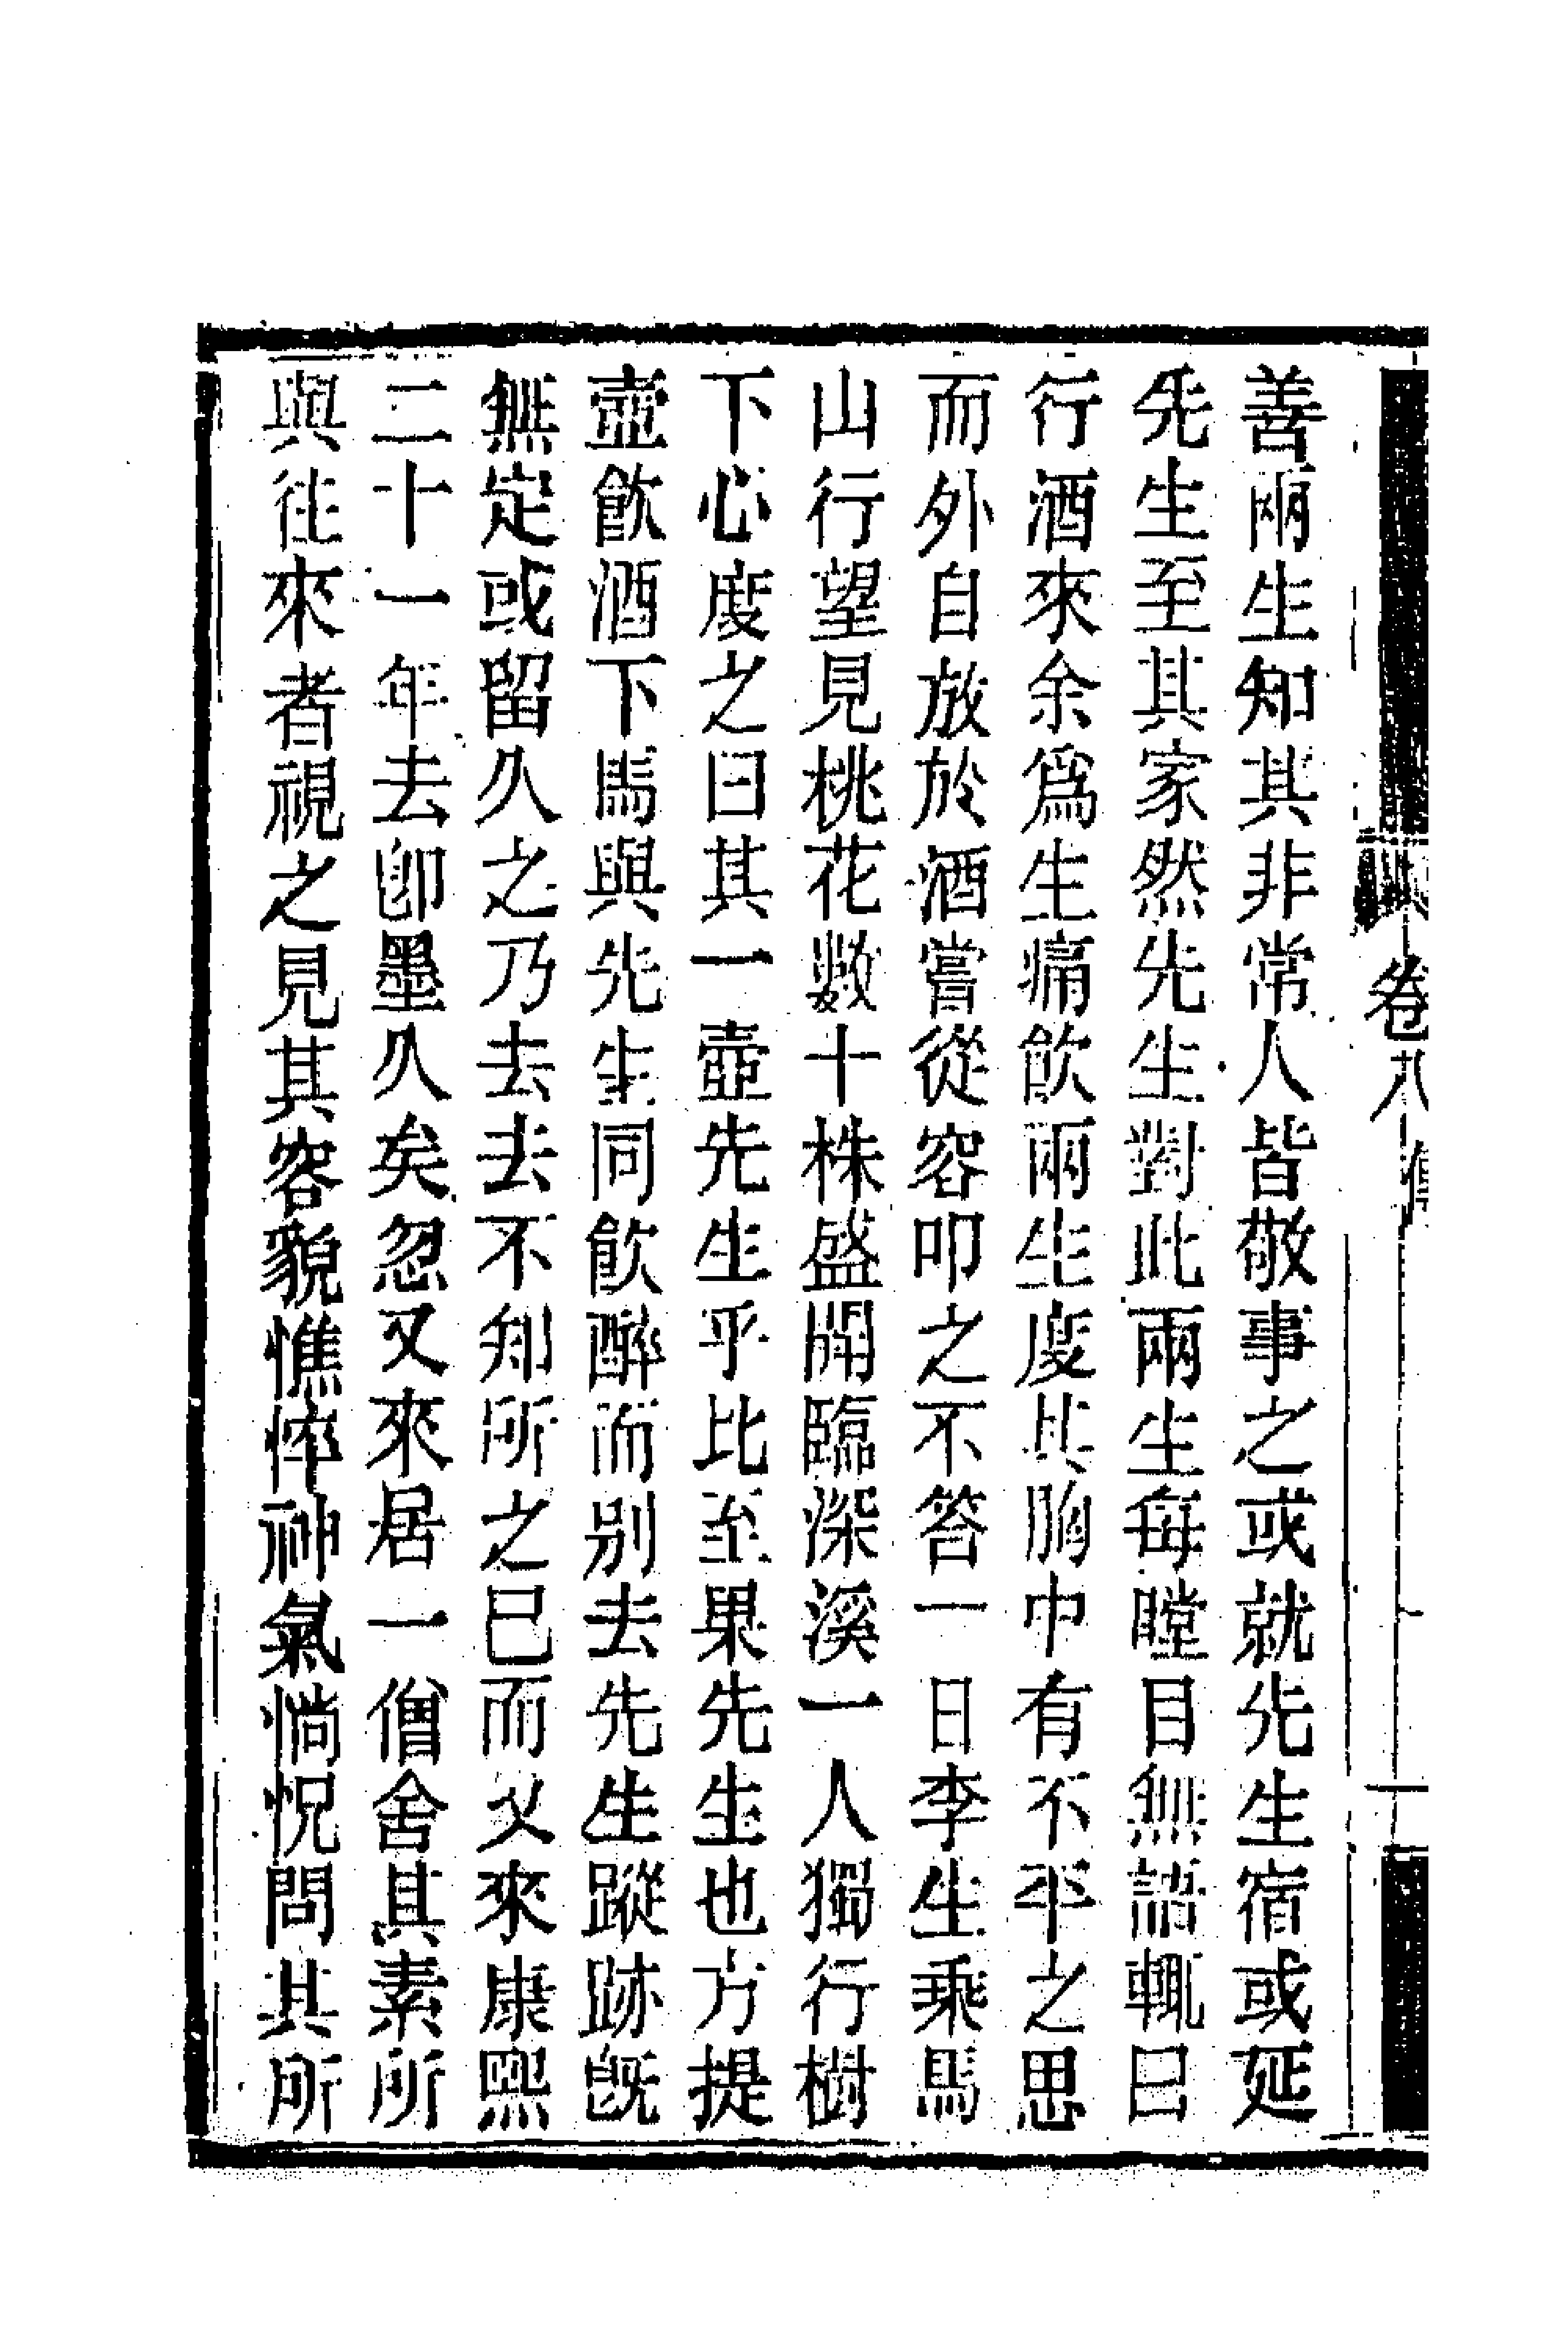 卷八
善兩生知其非常人皆敬事之或就先生宿或延
先生至其家然先生對此兩生每瞠目無語輒曰
行酒來余爲生痛飲兩生度其胸中有不平之思
而外自放於酒嘗從容叩之不答一日李生乘馬
山行望見桃花數十株盛開臨深溪一人獨行樹
下心度之曰其一壺先生乎比至果先生也方提
壺飲酒下馬與先生同飲醉而别去先生蹤跡旣
無定或留久之乃去去不知所之已而又來康熙
二十一年去卽墨久矣忽又來居一僧舍其素所
與往來者視之見其容貌憔悴神氣惝怳問其所